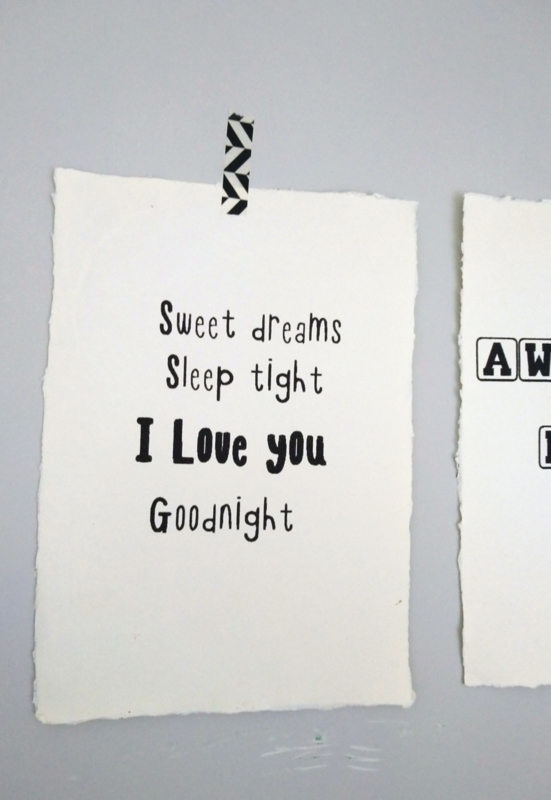 Sweet dreams
Sleep tight
I Love you
Goodnight
AW